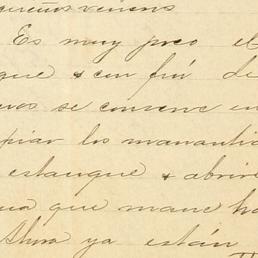 venenos
Es muy poco el
que & con fin de
se convene en
piar los manantia
estanque & abrire
ua que mane ha
Ahora ya están